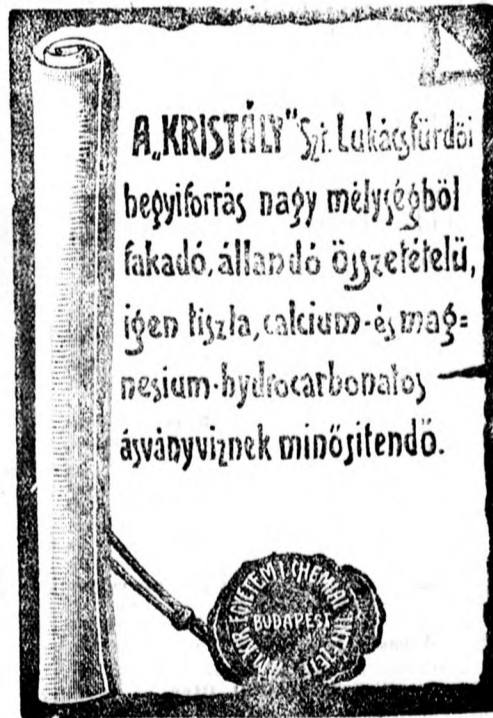 A „KRISTÁLY” Szt. Lukácsfürdői
hegyiforrás nagy mélységből
fakadó, állandó összetételü,
igen tiszta, calcium- és mag=
nesium-hydrocarbonatos
ásványviznek minősitendő.
M. KIR. EGYETEMI CHEMIAI INTÉZET
BUDAPEST